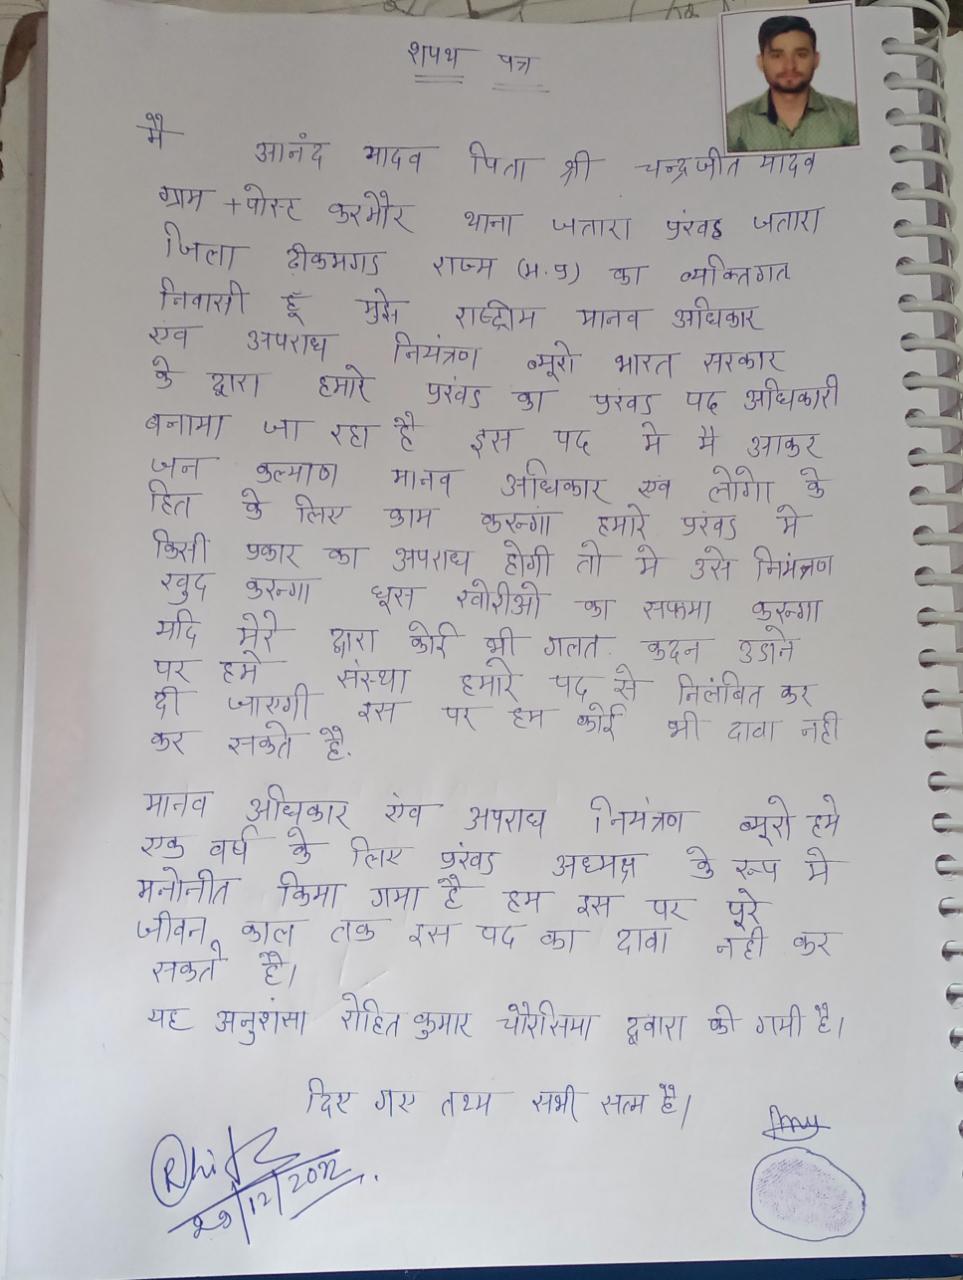 शपथ पत्र
मै आनंद यादव पिता श्री चन्द्रजीत यादव
ग्राम +पोस्ट करमौर थाना जतारा प्रंखड जतारा
जिला टीकमगड राज्य (म.प्र) का व्यक्तिगत
निवासी हूँ मुझे राष्ट्रीय मानव अधिकार
एंव अपराध नियंत्रण ब्यूरो भारत सरकार
के द्वारा हमारे प्रखंड का प्रखंड पद अधिकारी
बनाया जा रहा है इस पद मे मै आकर
जन कल्याण मानव अधिकार एंव लोगो के
हित के लिए काम करुन्गा हमारे प्रखंड मे
किसी प्रकार का अपराध होगी तो मे उसे नियंत्रण
खुद करुन्गा घूस खोरीओ का सफया करुन्गा
यदि मेरे द्वारा कोई भी गलत कदन उठाने
पर हमे संस्था हमारे पद से निलंबित कर
दी जाएगी इस पर हम कोई भी दावा नही
कर सकते है.
मानव अधिकार एंव अपराध नियंत्रण ब्यूरो हमे
एक वर्ष के लिए प्रंखड अध्यक्ष के रूप मे
मनोनीत किया गया है हम इस पर पूरे
जीवन काल तक इस पद का दावा नही कर
सकते है।
यह अनुशंसा रोहित कुमार चौरसिया द्वारा की गयी है।
दिए गए तथ्य सभी सत्य है।
Rhit
29/12/2022